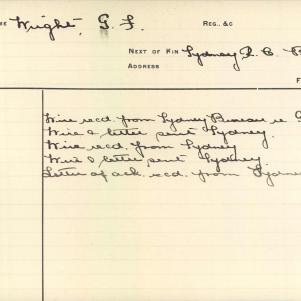 Wright, G. F. REG., &C
NEXT OF KIN Sydney R. C. B
ADDRESS
Wire recd. from Sydney Bureau re G
Wire & letter sent Sydney.
Wire recd. from Sydney
Wire & letter sent Sydney.
Letter of ack. recd. from Sydne